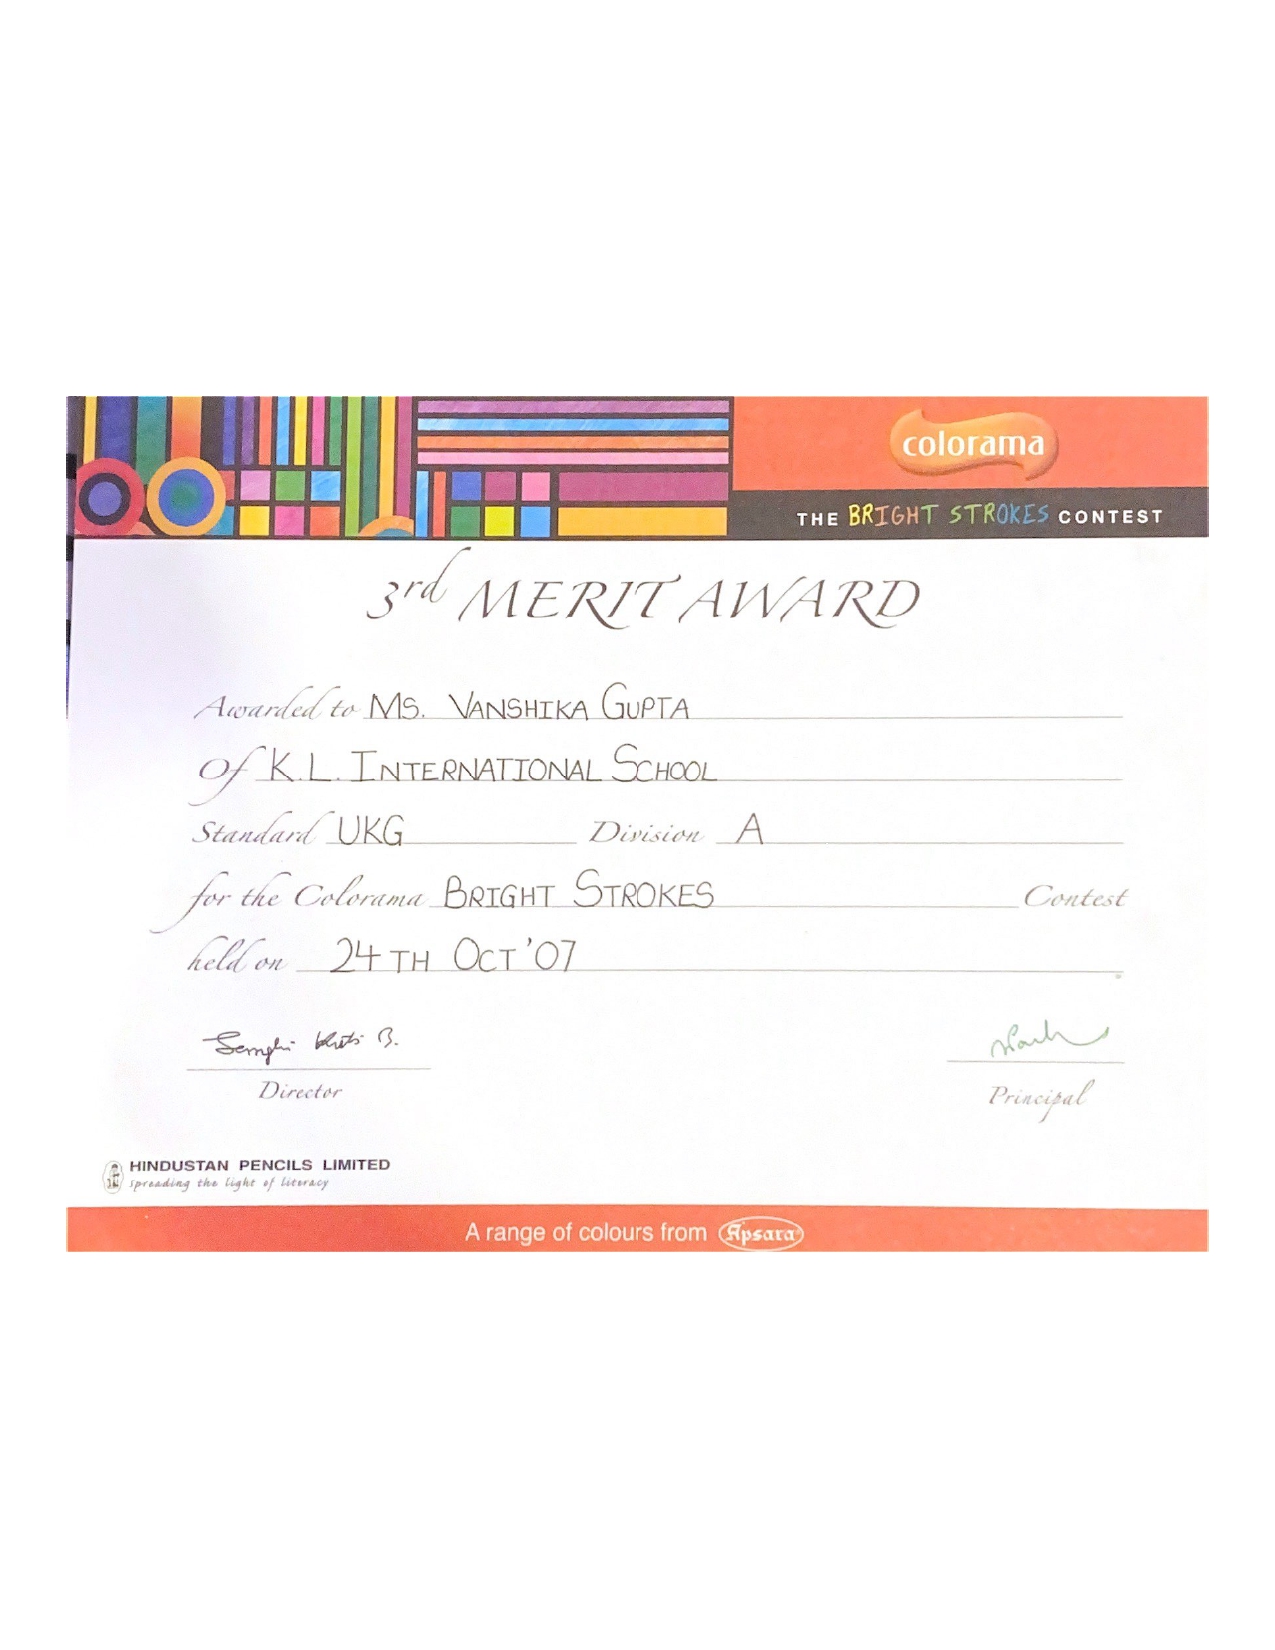 colorama
THE BRIGHT STROKES CONTEST
3rd MERIT AWARD
Awarded to MS. VANSHIKA GUPTA
of K.L. INTERNATIONAL SCHOOL
Standard UKG Division A
for the Colorama BRIGHT STROKES Contest
held on 24TH OCT '07
Director
Principal
HINDUSTAN PENCILS LIMITED
spreading the light of literacy
A range of colours from Apsara